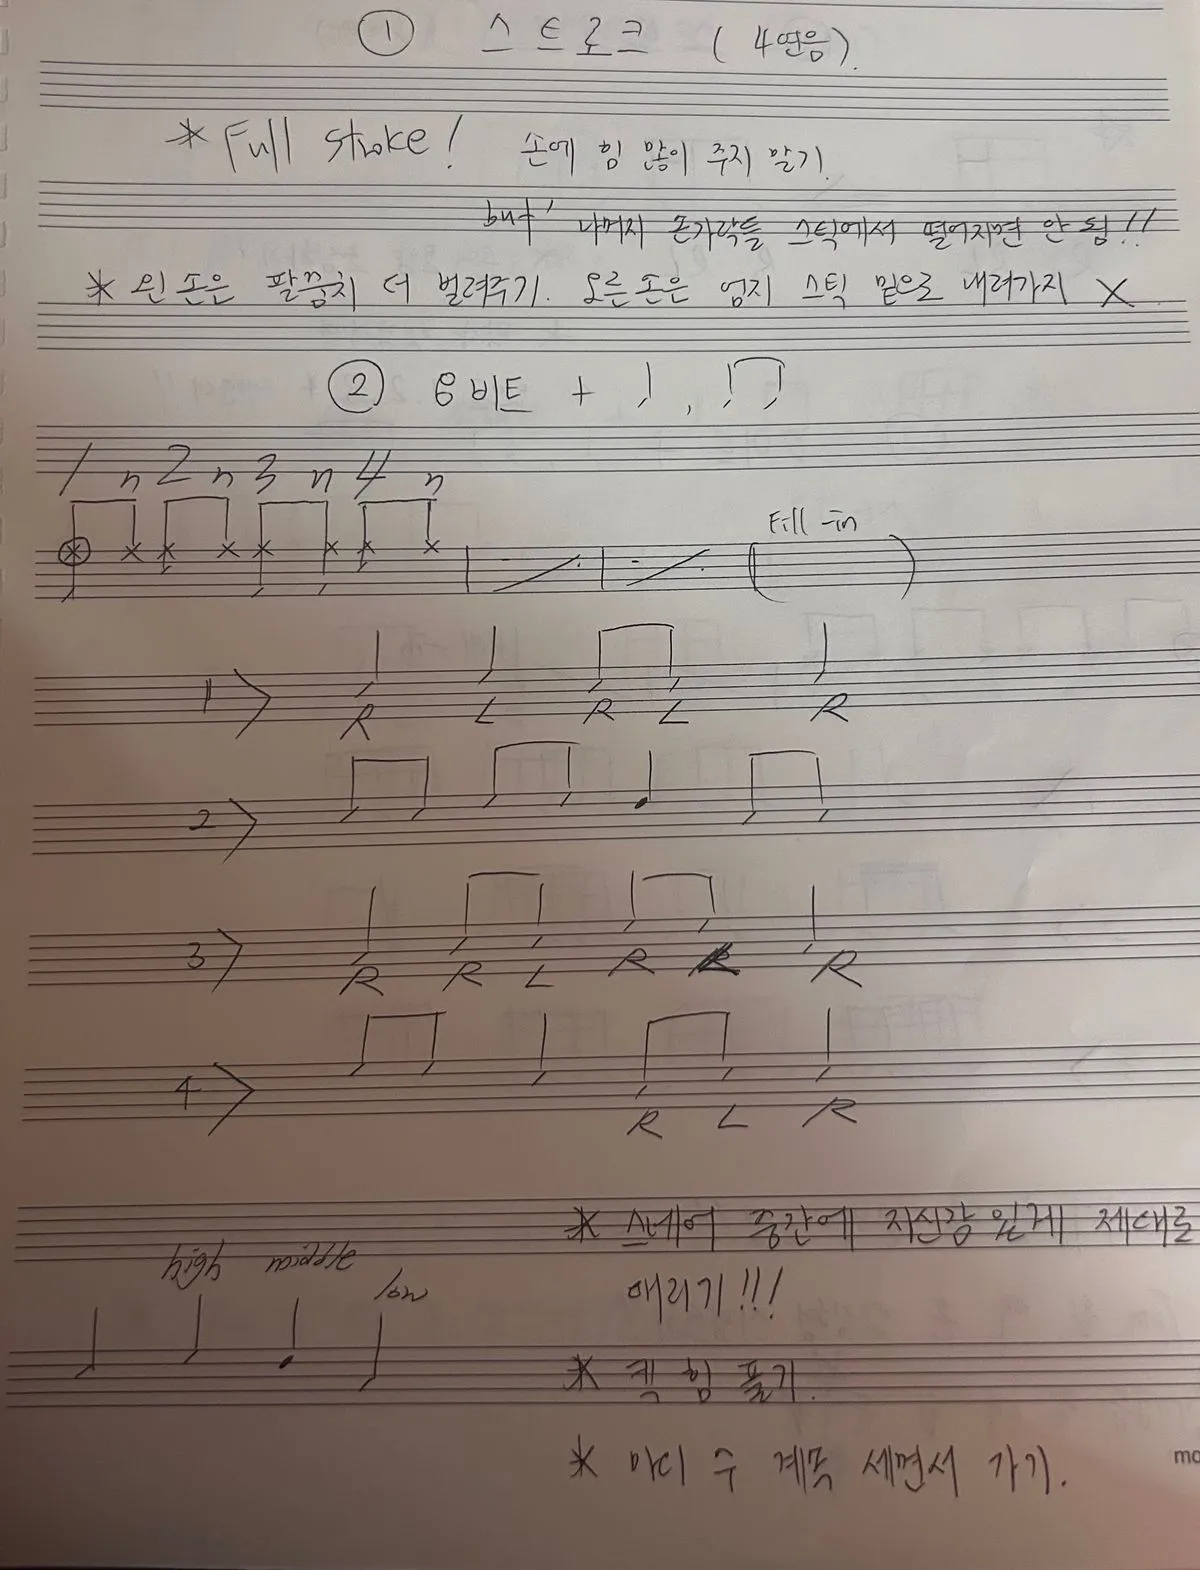 ① 스트로크 (4연음).
* Full stroke! 손에 힘 많이 주지 말기.
but, 나머지 손가락들 스틱에서 떨어지면 안 됨!!
* 왼손은 팔꿈치 더 벌려주기. 오른손은 엄지 스틱 밑으로 내려가지 X
② 8비트 + ♩, ♫
1 n 2 n 3 n 4 n
Fill-in
1> R L R L R
2>
3> R R L R R
4> R L R
* 스네어 중간에 자신감 있게 제대로
때리기!!!
high low
* 킥 힘 풀기.
* 마디 수 계속 세면서 가기.
mo